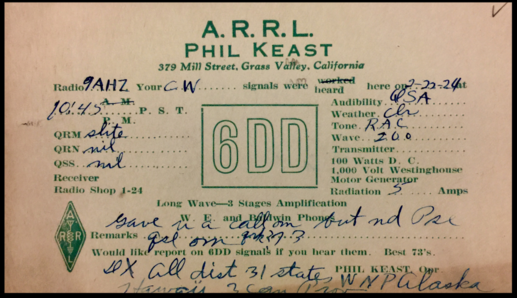 A.R.R.L.
PHIL KEAST
379 Mill Street, Grass Valley, California
Radio 9AHZ Your CW signals were worked heard here on 2-22-24 at
10:45 A. M. P. M. P. S. T.
Audibility QSA
Weather Clr
QRM slite
Tone RAC
QRN nil
Wave 200
QSS nil
Transmitter
Receiver
100 Watts D. C.
1,000 Volt Westinghouse
Motor Generator
Radio Shop 1-24
Radiation 5 Amps
6DD
Long Wave—3 Stages Amplification
W. E. and Baldwin Phones
Gave u a call om but nd Pse
Remarks Qsl om
Would like report on 6DD signals if you hear them. Best 73's.
ARRL
DX All dist 31 states WNP Alaska
PHIL KEAST, Opr
Hawaii 3 Can